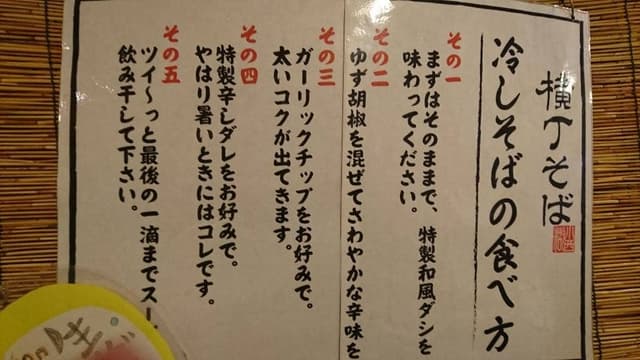 横丁そば
冷しそばの食べ方
その一
まずはそのままで、特製和風ダシを
味わってください。
その二
ゆず胡椒を混ぜてさわやかな辛味を
その三
ガーリックチップをお好みで。
太いコクが出てきます。
その四
特製辛しダレをお好みで。
やはり暑いときにはコレです。
その五
ツイ〜っと最後の一滴までスー
飲み干して下さい。